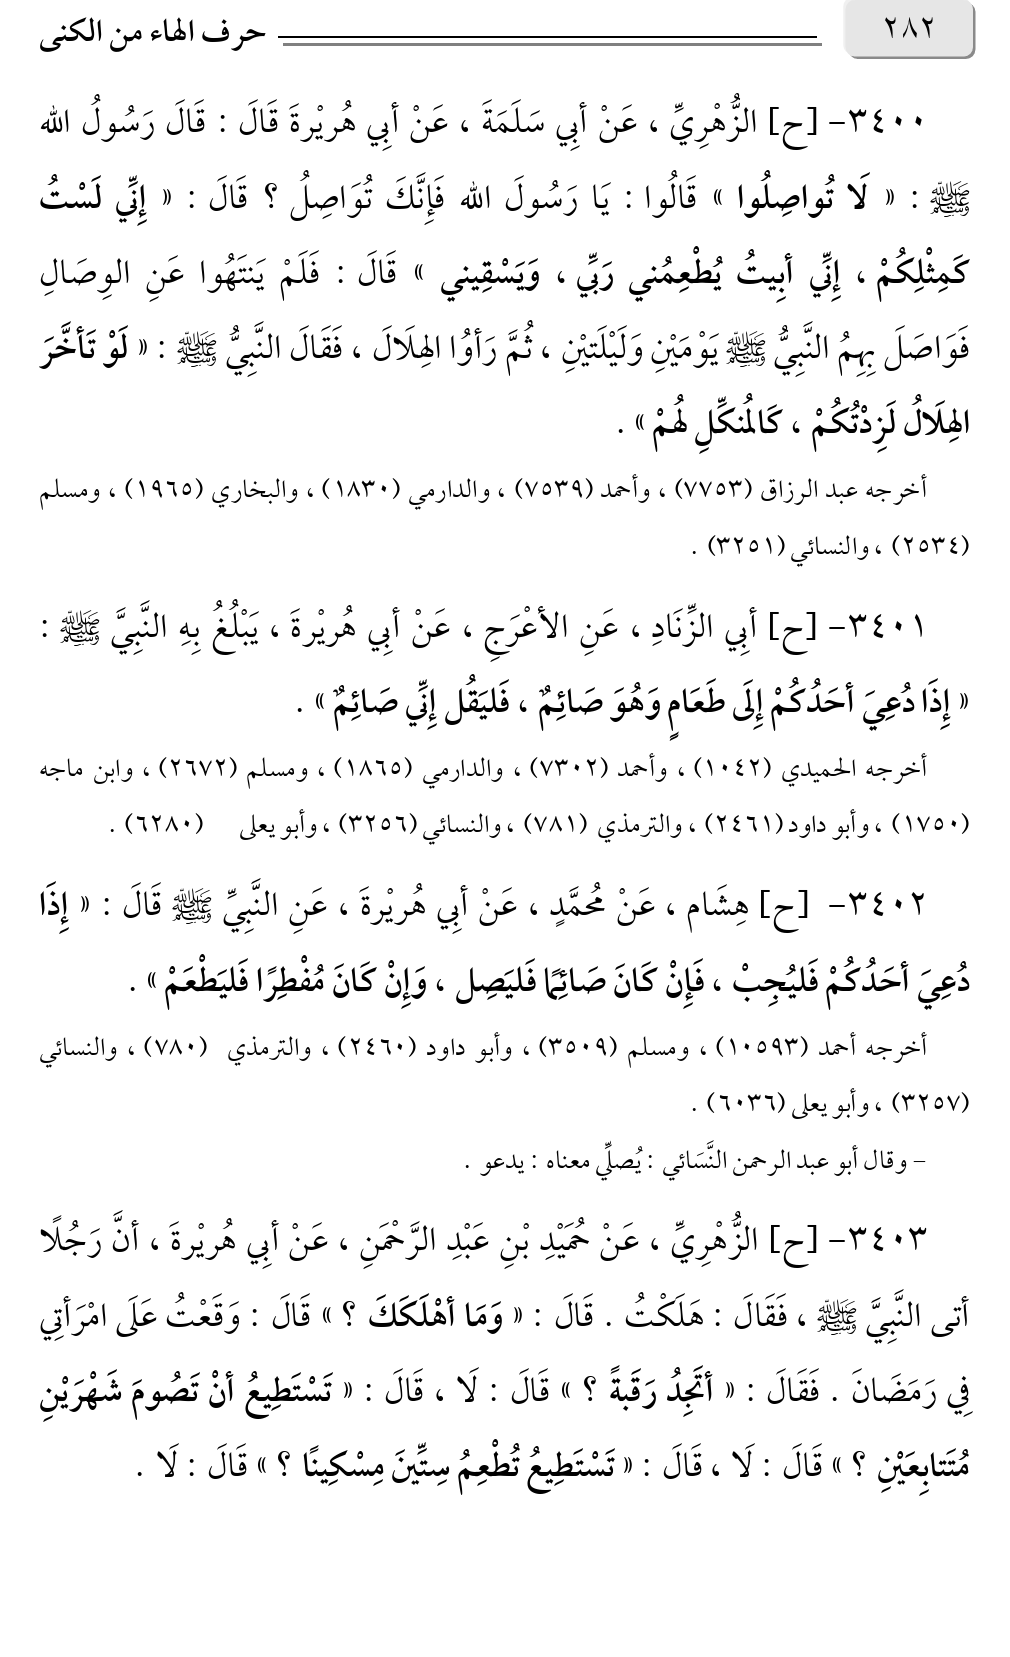 ٢٨٢ حرف الهاء من الكنى
٣٤٠٠- [ح] الزُّهْرِيِّ ، عَنْ أبي سَلَمَةَ ، عَنْ أبِي هُريْرةَ قَالَ : قَالَ رَسُولُ الله
ﷺ : « لَا تُواصِلُوا » قَالُوا : يَا رَسُولَ الله فَإِنَّكَ تُوَاصِلُ ؟ قَالَ : « إِنِّي لَسْتُ
كَمِثْلِكُمْ ، إِنِّي أبِيتُ يُطْعِمُني رَبِّي ، وَيَسْقِيني » قَالَ : فَلَمْ يَنتَهُوا عَنِ الوِصَالِ
فَوَاصَلَ بِهِمُ النَّبِيُّ ﷺ يَوْمَيْنِ وَلَيْلَتيْنِ ، ثُمَّ رَأوُا الهِلَالَ ، فَقَالَ النَّبِيُّ ﷺ : « لَوْ تَأخَّرَ
الهِلَالُ لَزِدْتُكُمْ ، كَالمُنكِّلِ لهُمْ » .
أخرجه عبد الرزاق (٧٧٥٣) ، وأحمد (٧٥٣٩) ، والدارمي (١٨٣٠) ، والبخاري (١٩٦٥) ، ومسلم
(٢٥٣٤) ، والنسائي (٣٢٥١) .
٣٤٠١- [ح] أبِي الزِّنَادِ ، عَنِ الأعْرَجِ ، عَنْ أبِي هُريْرةَ ، يَبْلُغُ بِهِ النَّبِيَّ ﷺ :
« إِذَا دُعِيَ أحَدُكُمْ إِلَى طَعَامٍ وَهُوَ صَائِمٌ ، فَليَقُل إِنِّي صَائِمٌ » .
أخرجه الحميدي (١٠٤٢) ، وأحمد (٧٣٠٢) ، والدارمي (١٨٦٥) ، ومسلم (٢٦٧٢) ، وابن ماجه
(١٧٥٠) ، وأبو داود (٢٤٦١) ، والترمذي (٧٨١) ، والنسائي (٣٢٥٦) ، وأبو يعلى (٦٢٨٠) .
٣٤٠٢- [ح] هِشَام ، عَنْ مُحمَّدٍ ، عَنْ أبِي هُريْرةَ ، عَنِ النَّبِيِّ ﷺ قَالَ : « إِذَا
دُعِيَ أحَدُكُمْ فَليُجِبْ ، فَإِنْ كَانَ صَائِمًا فَليَصِل ، وَإِنْ كَانَ مُفْطِرًا فَليَطْعَمْ » .
أخرجه أحمد (١٠٥٩٣) ، ومسلم (٣٥٠٩) ، وأبو داود (٢٤٦٠) ، والترمذي (٧٨٠) ، والنسائي
(٣٢٥٧) ، وأبو يعلى (٦٠٣٦) .
– وقال أبو عبد الرحمن النَّسَائي : يُصلِّي معناه : يدعو .
٣٤٠٣- [ح] الزُّهْرِيِّ ، عَنْ حُمَيْدِ بْنِ عَبْدِ الرَّحْمَنِ ، عَنْ أبِي هُريْرةَ ، أنَّ رَجُلًا
أتى النَّبِيَّ ﷺ ، فَقَالَ : هَلَكْتُ . قَالَ : « وَمَا أهْلَكَكَ ؟ » قَالَ : وَقَعْتُ عَلَى امْرَأتِي
فِي رَمَضَانَ . فَقَالَ : « أتَجِدُ رَقَبةً ؟ » قَالَ : لَا ، قَالَ : « تَسْتَطِيعُ أنْ تَصُومَ شَهْرَيْنِ
مُتَتابِعَيْنِ ؟ » قَالَ : لَا ، قَالَ : « تَسْتَطِيعُ تُطْعِمُ سِتِّينَ مِسْكِينًا ؟ » قَالَ : لَا .